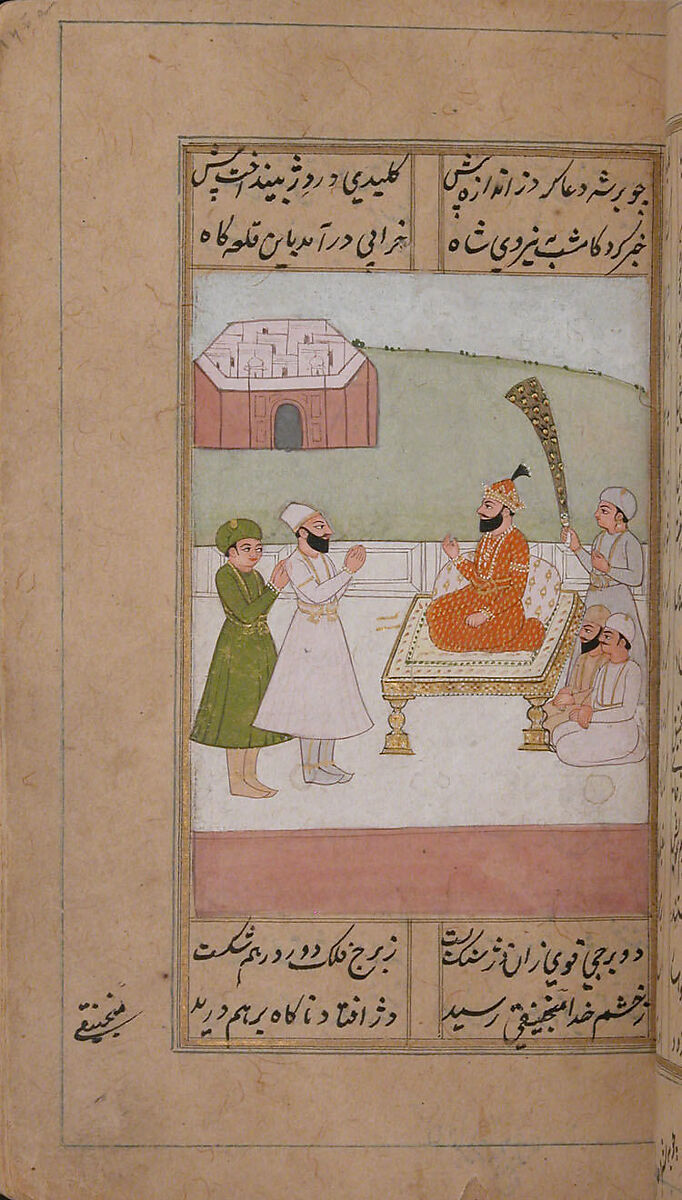 چو بر شه دعا کرد ز اندازه پیش کلیدی در دژ بینداخت پیش
خبر کرد کامشب بنیروی شاه خرابی در آمد باین قلعه گاه
دو برجی قوی زان دژ سنگ بست ز برج فلک دور در هم شکست
ز خشم خدا منجنیقی رسید دژ افتاد ناگاه بر هم درید
منجنیقی